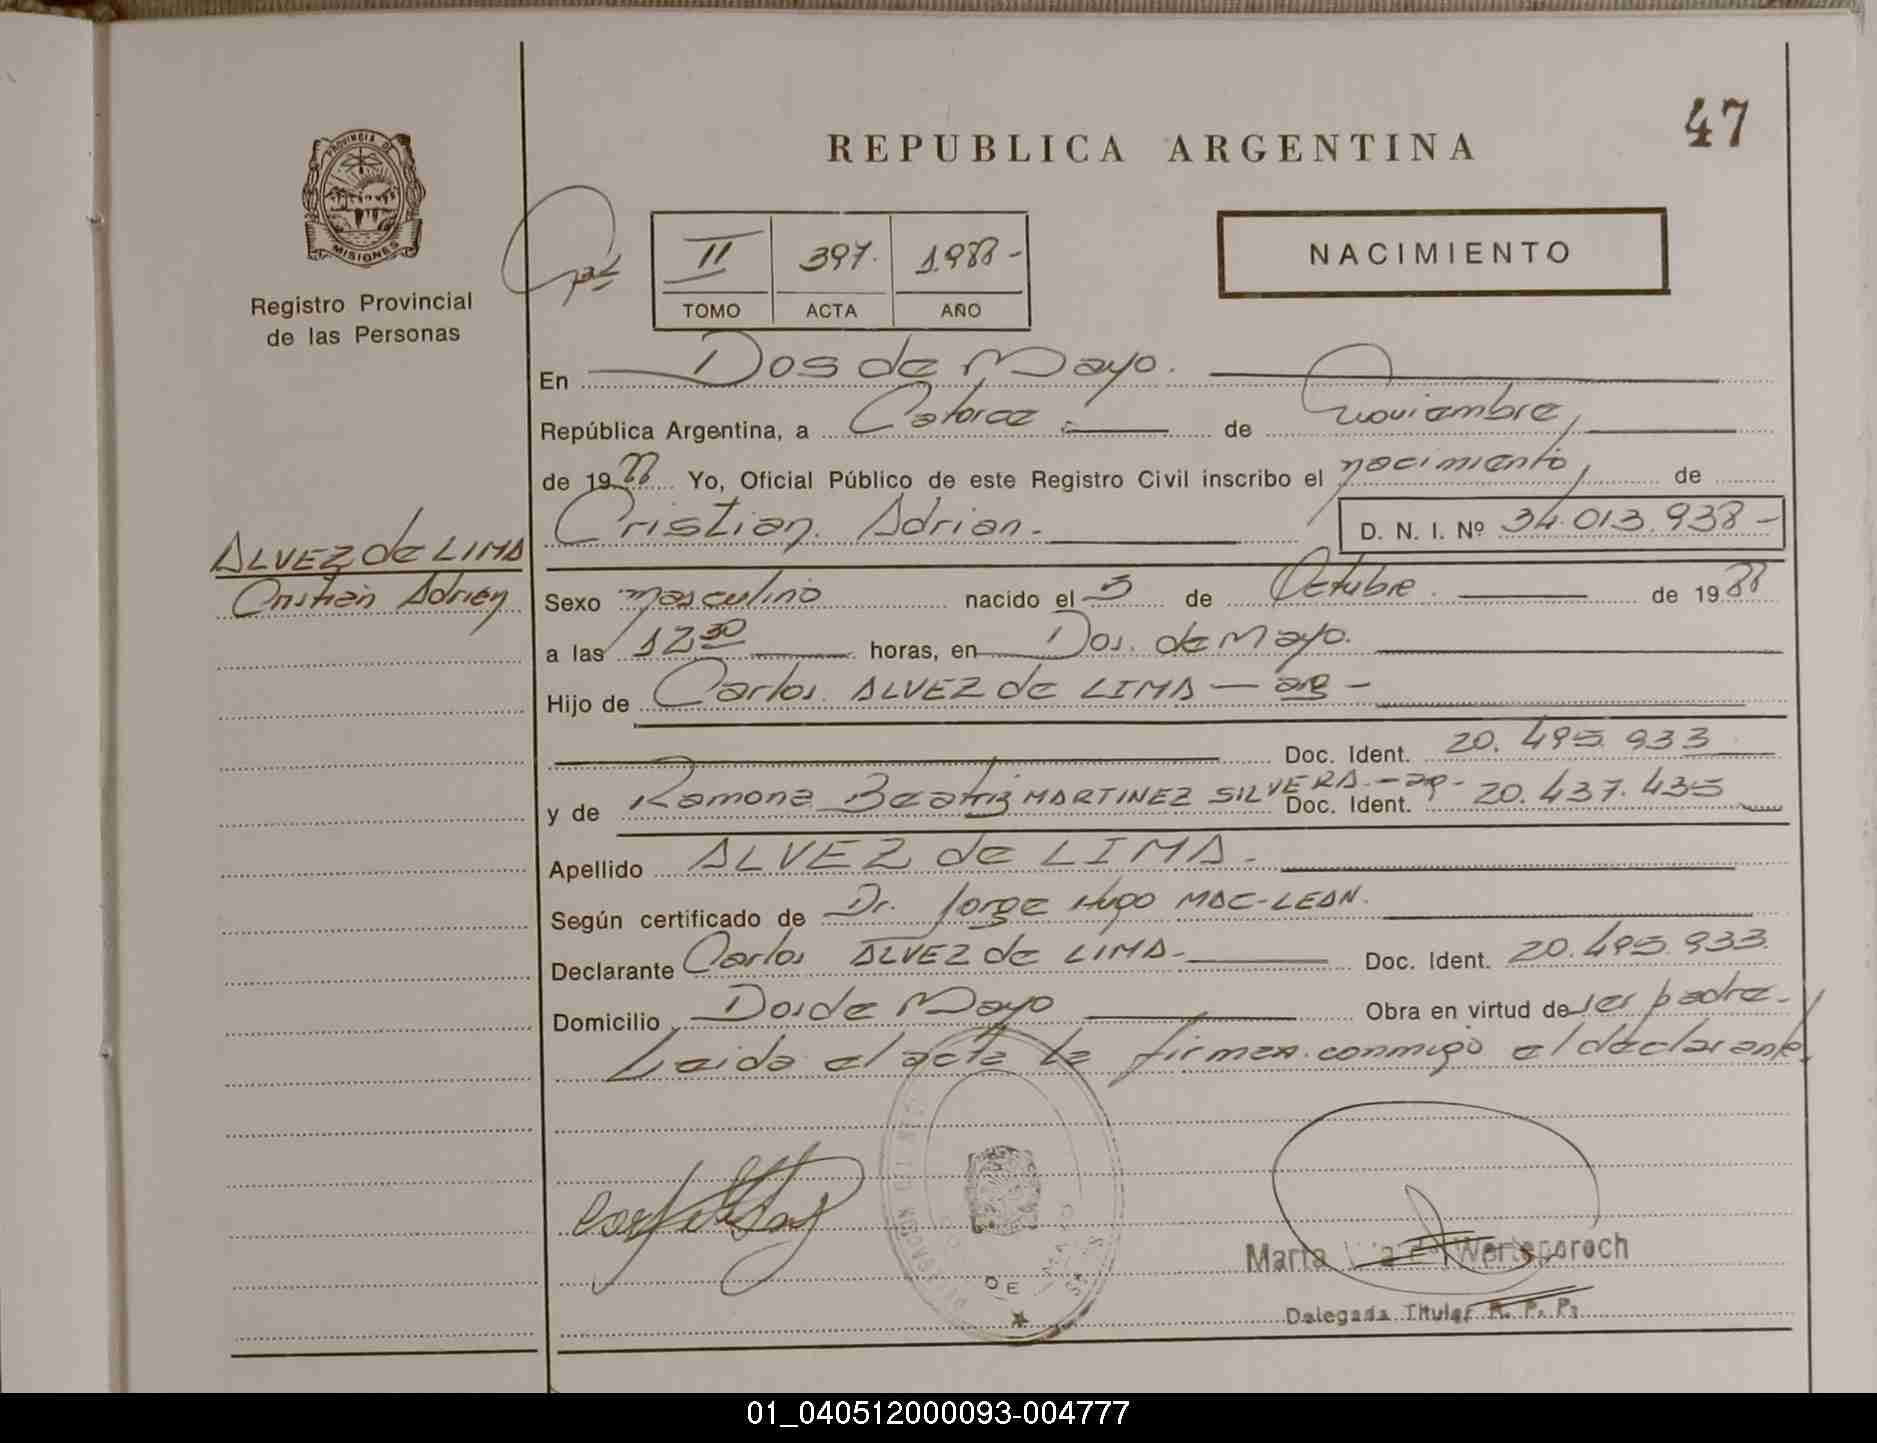 47
REPUBLICA ARGENTINA
PROVINCIA DE
MISIONES
Registro Provincial
de las Personas
II 397. 1.988 -
TOMO ACTA AÑO
NACIMIENTO
En Dos de Mayo.
República Argentina, a Catorce de Noviembre,
de 1988 Yo, Oficial Público de este Registro Civil inscribo el nacimiento, de
Cristian Adrian.- D. N. I. Nº 34.013.938-
ALVEZ de LIMA
Cristián Adrián
Sexo masculino nacido el 3 de Octubre. de 1988
a las 12 30 horas, en Dos. de Mayo.
Hijo de Carlos ALVEZ de LIMA — arg -
Doc. Ident. 20.495.933
y de Ramona Beatriz MARTINEZ SILVERA.- ar- Doc. Ident. 20.437.435
Apellido ALVEZ de LIMA.
Según certificado de Dr. Jorge Hugo MAC-LEAN.
Declarante Carlos ALVEZ de LIMA.- Doc. Ident. 20.495.933.
Domicilio Dos de Mayo Obra en virtud de ser padre.-
Leida el acta la firman conmigo el declarante,
DE
Marta Werteporoch
Delegada Titular R. P. P.
01_040512000093-004777